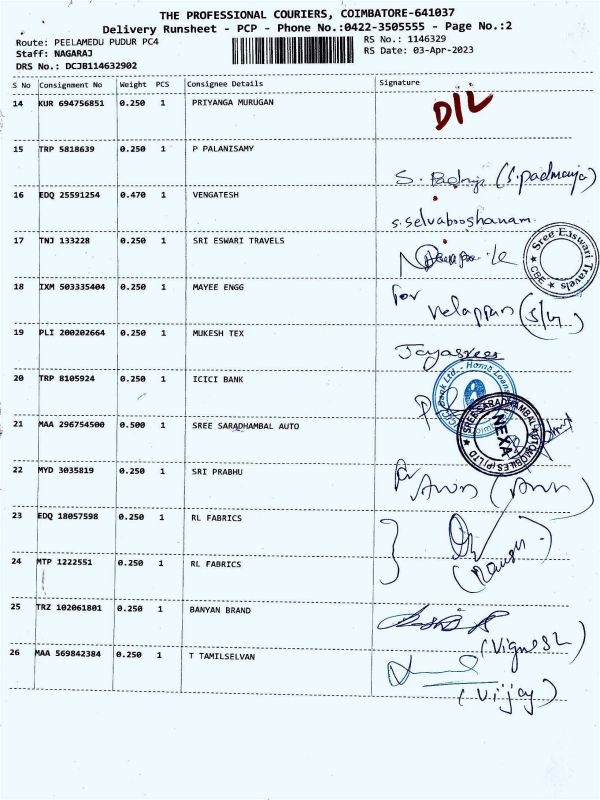 THE PROFESSIONAL COURIERS, COIMBATORE-641037
Delivery Runsheet - PCP - Phone No.:0422-3505555 - Page No.:2
Route: PEELAMEDU PUDUR PC4
RS No.: 1146329
Staff: NAGARAJ
RS Date: 03-Apr-2023
DRS No.: DCJB114632902
S No Consignment No Weight PCS Consignee Details Signature
14 KUR 694756851 0.250 1 PRIYANGA MURUGAN D/L
15 TRP 5818639 0.250 1 P PALANISAMY
S. (S.padmavja)
16 EDQ 25591254 0.470 1 VENGATESH
S.selvabooshanam
17 TNJ 133228 0.250 1 SRI ESWARI TRAVELS
Sree Easwari Travels CBE
18 IXM 503335404 0.250 1 MAYEE ENGG
For velappan (S/W)
19 PLI 200202664 0.250 1 MUKESH TEX
Jayasree
20 TRP 8105924 0.250 1 ICICI BANK
Bank Ltd. - Home Loans
21 MAA 296754500 0.500 1 SREE SARADHAMBAL AUTO
SREE SARADHAMBAL AUTOMOBILES (P) LTD
NEXA
22 MYD 3035819 0.250 1 SRI PRABHU
For Arun (Arun)
23 EDQ 18057598 0.250 1 RL FABRICS
24 MTP 1222551 0.250 1 RL FABRICS
25 TRZ 102061801 0.250 1 BANYAN BRAND
(Vignesh)
26 MAA 569842384 0.250 1 T TAMILSELVAN
(Vijay)